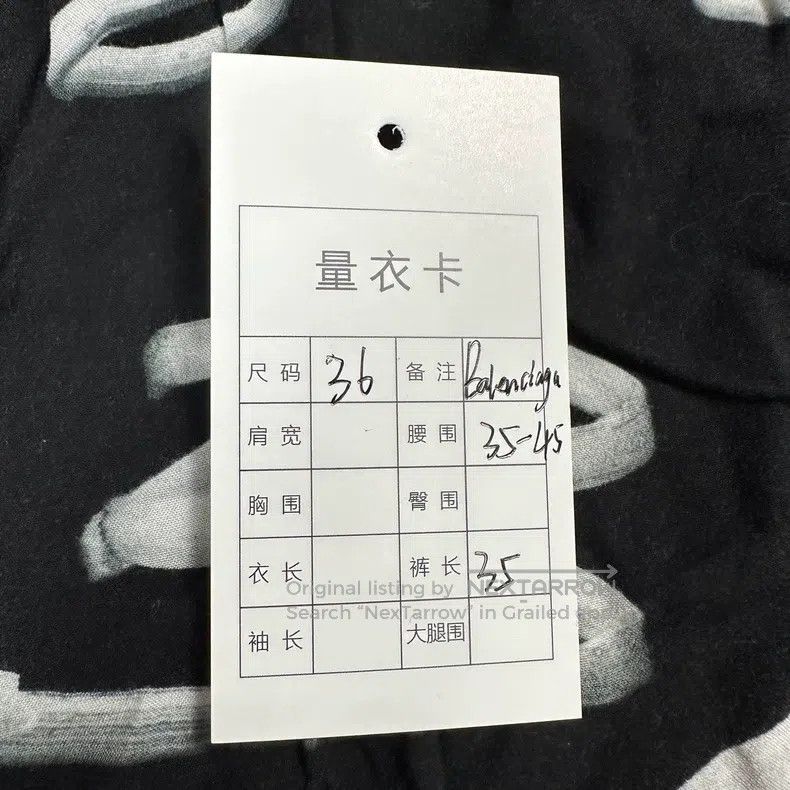 量衣卡
尺码 36 备注 Balenciaga
肩宽 腰围 35-45
胸围 臀围
衣长 裤长 35
Original listing by NEXTARROW
Search “NexTarrow” in Grailed
袖长 大腿围